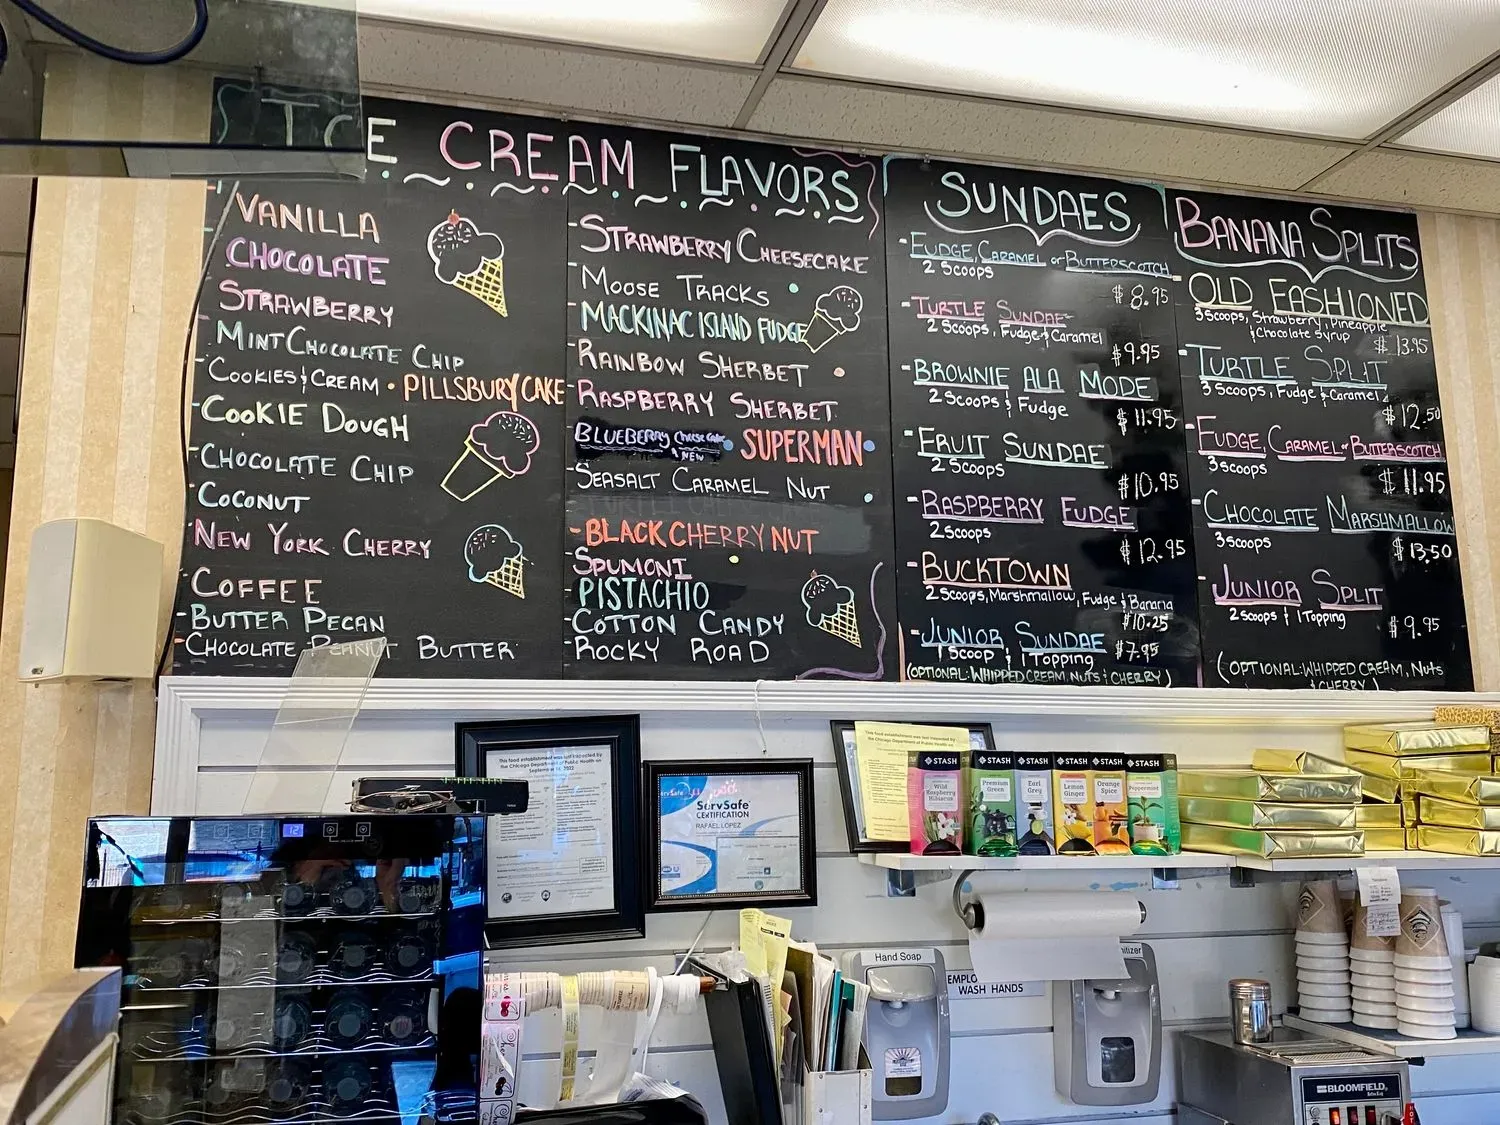 ICE CREAM FLAVORS
VANILLA
CHOCOLATE
STRAWBERRY
MINT CHOCOLATE CHIP
COOKIES & CREAM • PILLSBURY CAKE
COOKIE DOUGH
CHOCOLATE CHIP
COCONUT
NEW YORK CHERRY
COFFEE
BUTTER PECAN
CHOCOLATE PEANUT BUTTER
STRAWBERRY CHEESECAKE
MOOSE TRACKS
MACKINAC ISLAND FUDGE
RAINBOW SHERBET
RASPBERRY SHERBET
BLUEBERRY Cheese Cake • SUPERMAN •
NEW
SEASALT CARAMEL NUT
BLACK CHERRY NUT
SPUMONI
PISTACHIO
COTTON CANDY
ROCKY ROAD
SUNDAES
FUDGE, CARAMEL or BUTTERSCOTCH
2 SCOOPS
$8.95
TURTLE SUNDAE
2 SCOOPS, Fudge & Caramel
$9.95
BROWNIE ALA MODE
2 SCOOPS & Fudge
$11.95
FRUIT SUNDAE
2 SCOOPS
$10.95
RASPBERRY FUDGE
2 SCOOPS
$12.95
BUCKTOWN
2 SCOOPS, Marshmallow, Fudge & Banana
$10.25
JUNIOR SUNDAE
1 Scoop & 1 Topping
$7.95
(OPTIONAL: WHIPPED CREAM, NUTS & CHERRY)
BANANA SPLITS
OLD FASHIONED
3 Scoops, Strawberry, Pineapple
& Chocolate Syrup
$13.95
TURTLE SPLIT
3 SCOOPS, Fudge & Caramel
$12.50
FUDGE, CARAMEL or BUTTERSCOTCH
3 SCOOPS
$11.95
CHOCOLATE MARSHMALLOW
3 SCOOPS
$13.50
JUNIOR SPLIT
2 SCOOPS & 1 Topping
$9.95
(OPTIONAL: WHIPPED CREAM, NUTS
& CHERRY)
This food establishment was last inspected by
the Chicago Department of Public Health on
September 14, 2022
ServSafe
ServSafe
CERTIFICATION
RAFAEL LOPEZ
This food establishment was last inspected by
the Chicago Department of Public Health on
STASH
Wild
Raspberry
Hibiscus
STASH
Premium
Green
STASH
Earl
Grey
STASH
Lemon
Ginger
STASH
Orange
Spice
STASH
Peppermint
12
Hand Soap
EMPLO
WASH HANDS
nitizer
BLOOMFIELD